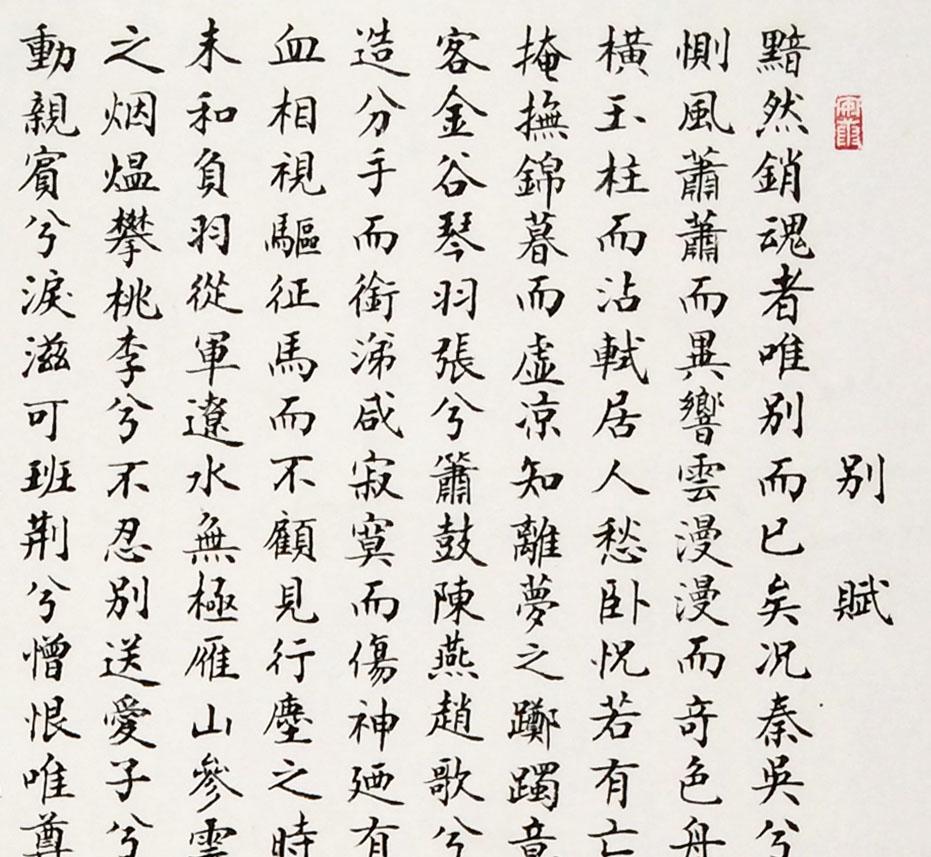 别賦
黯然銷魂者唯别而已矣况秦吳兮
惻風蕭蕭而異響雲漫漫而奇色舟
橫玉柱而沾軾居人愁卧怳若有亡
掩撫錦暮而虛凉知離夢之躑躅意
客金谷琴羽張兮簫鼓陳燕趙歌兮
造分手而銜涕咸寂寞而傷神廼有
血相視驅征馬而不顧見行塵之時
未和負羽從軍遼水無極雁山參雲
之烟煴攀桃李兮不忍别送愛子兮
動親賓兮淚滋可班荆兮憎恨唯尊